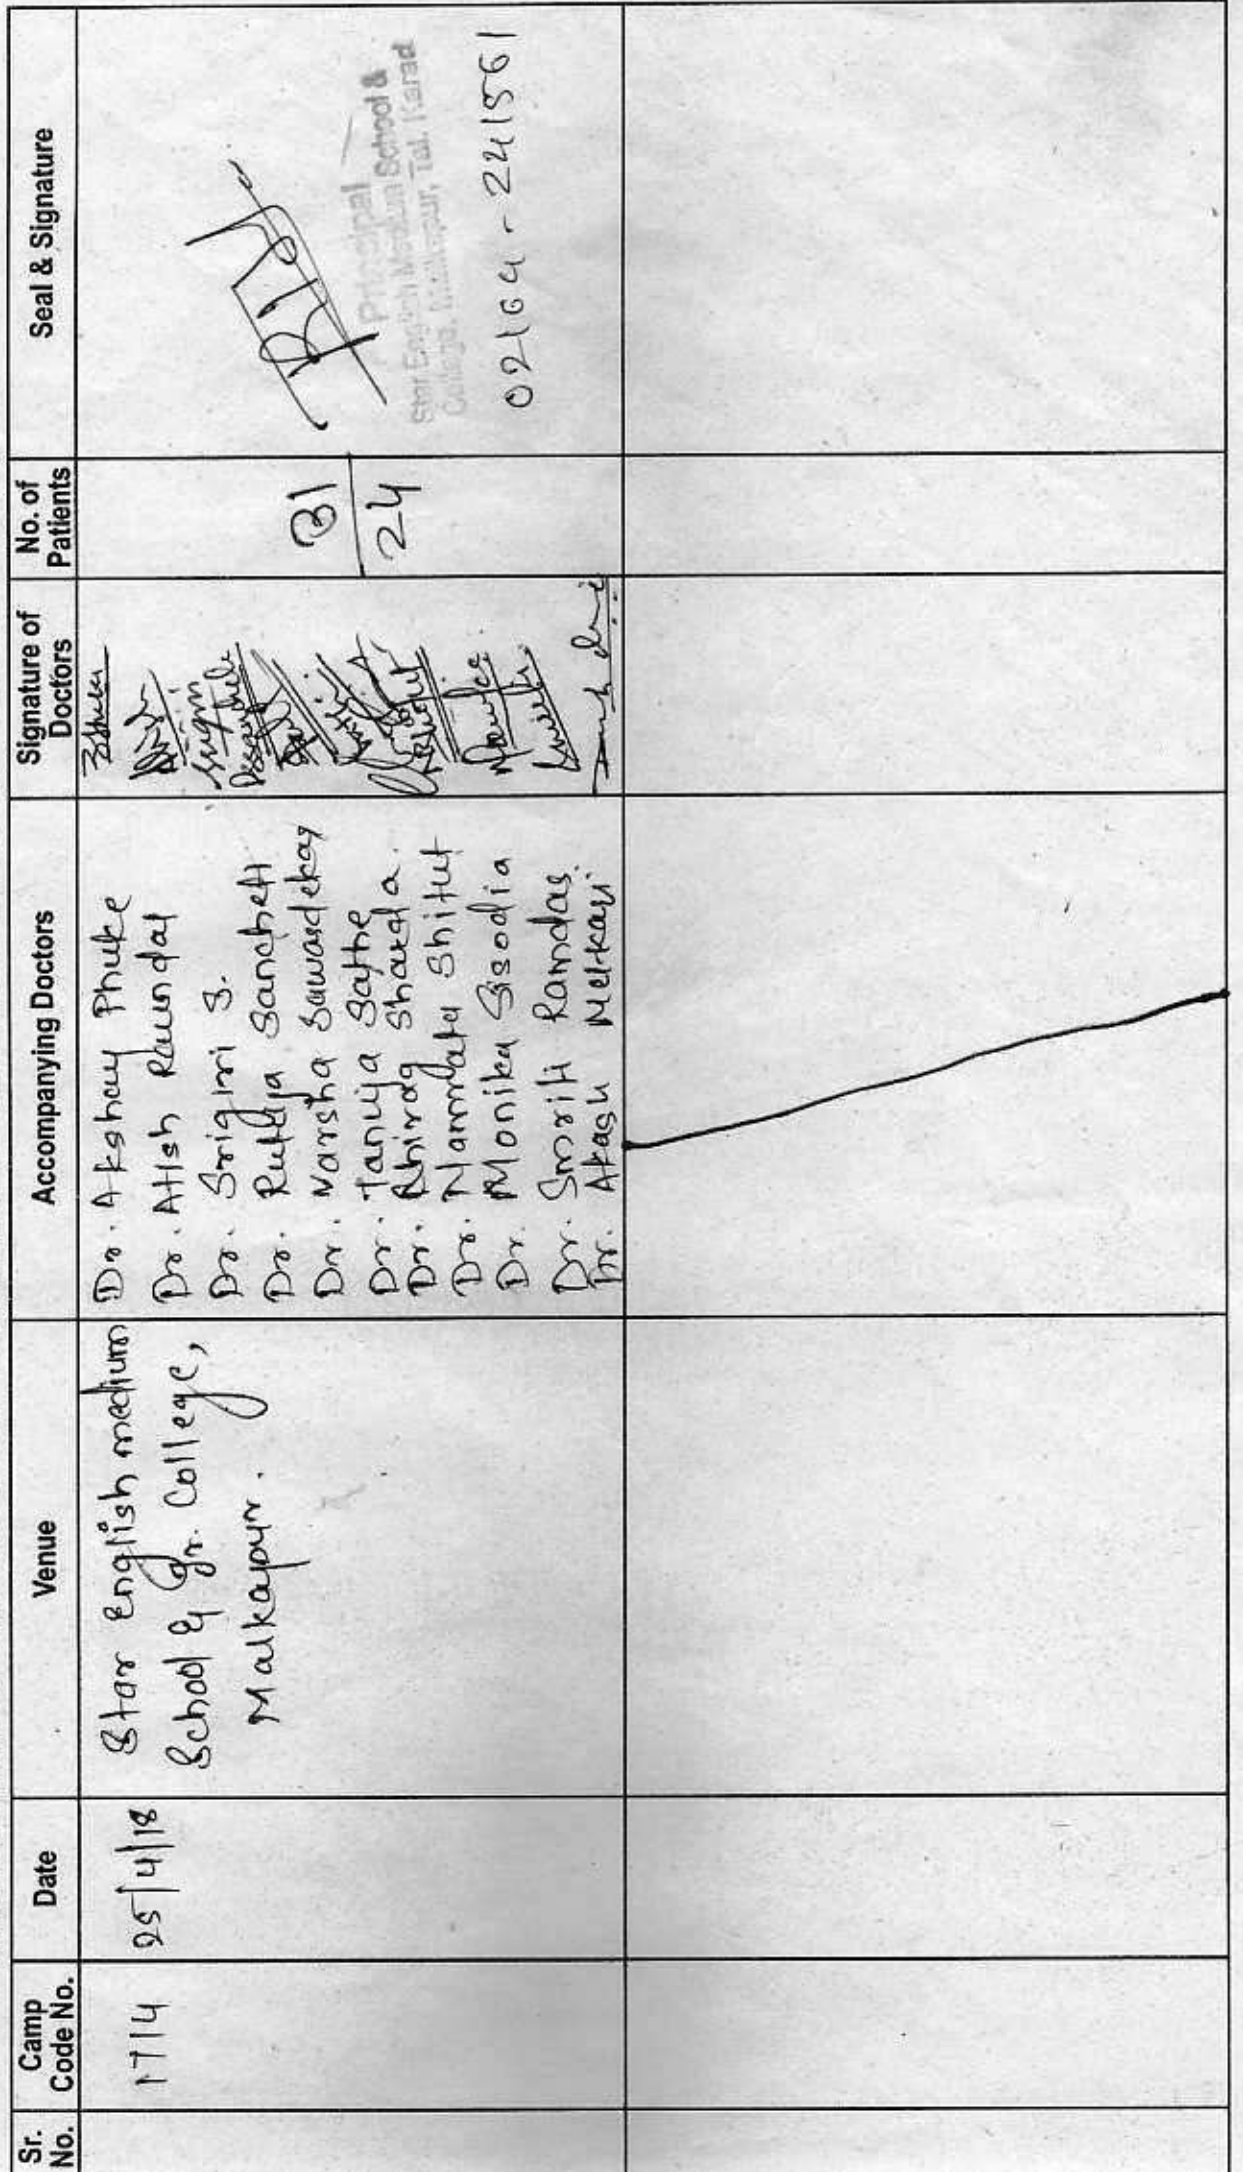 Sr. No.
Camp Code No.
Date
Venue
Accompanying Doctors
Signature of Doctors
No. of Patients
Seal & Signature
1714
25/4/18
Star English medium
School & Jr. College,
Malkapur.
Dr. Akshay Phuke
Dr. Atish Raundal
Dr. Srigiri S.
Dr. Rutuja Sancheti
Dr. Varsha Sawardekar
Dr. Tanuja Sathe
Dr. Chirag Sharda.
Dr. Namrata Shitut
Dr. Monika Sisodia
Dr. Smriti Ramdas.
Dr. Akash Melkari
31
24
Principal
Star English Medium School &
College, Malkapur, Tal. Karad
02164-241561